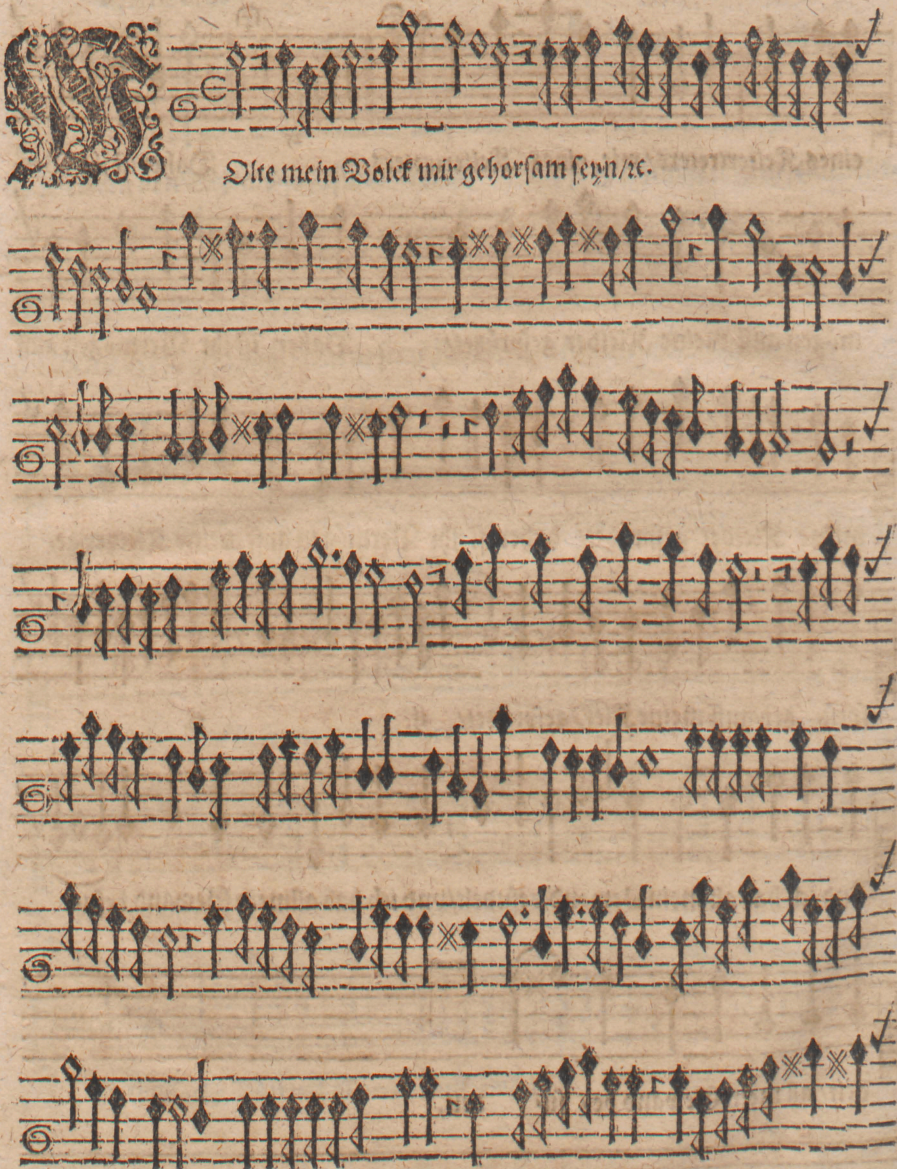 WOlte mein Volck mir gehorsam seyn/ꝛc.